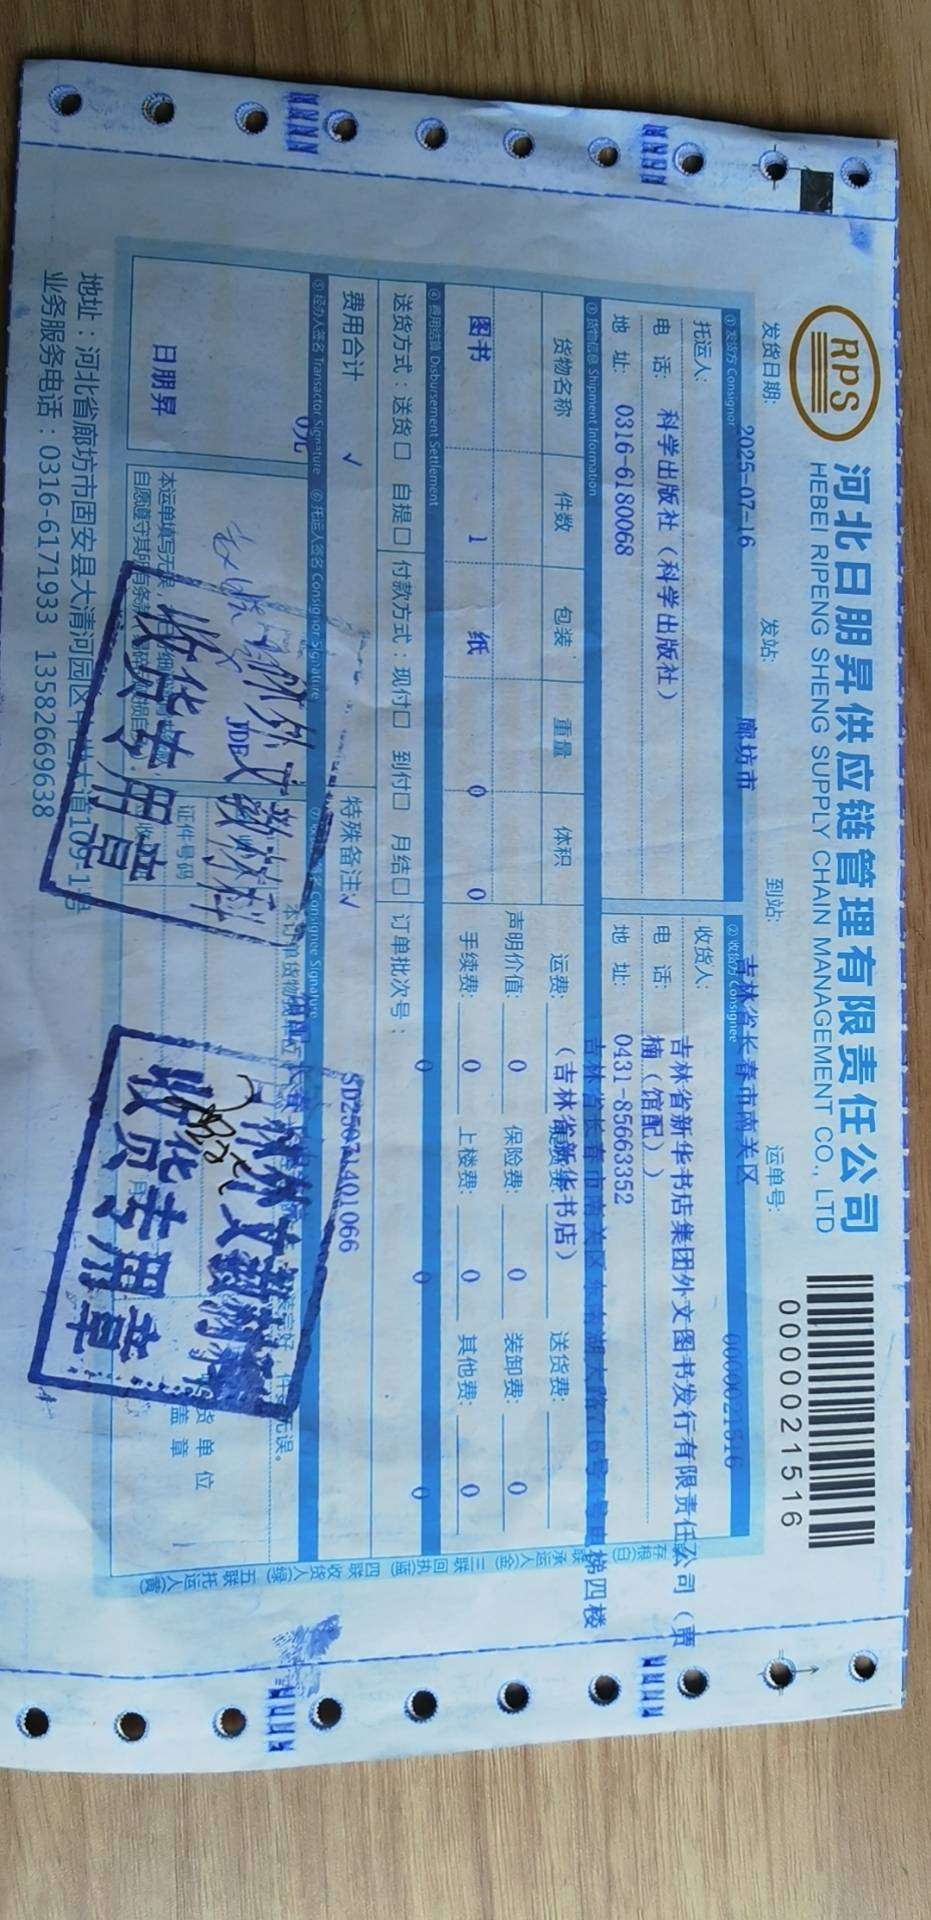 RPS
河北日朋昇供应链管理有限责任公司
HEBEI RIPENG SHENG SUPPLY CHAIN MANAGEMENT CO., LTD
0000021516
发货日期:
2025-07-16
发站:
廊坊市
到站:
吉林省长春市南关区
运单号:
0000021516
① 发货方 Consignor
② 收货方 Consignee
托运人:
科学出版社（科学出版社）
电 话:
0316-6180068
地 址:
收货人:
吉林省新华书店集团外文图书发行有限责任公司（贾
楠（馆配））
电 话:
0431-85663352
地 址:
吉林省长春市南关区东南湖大路716号4号电梯四楼
（吉林省新华书店）
③ 货物信息 Shipment Information
货物名称 件数 包装 重量 体积
图书 1 纸 0 0
运费:
送货费:
声明价值: 0 保险费: 0 装卸费: 0
手续费: 0 上楼费: 0 其他费: 0
④ 费用结算 Disbursement Settlement
0 0 0
送货方式：送货□ 自提□ 付款方式：现付□ 到付□ 月结□ 订单批次号：
SD25071401066
费用合计 √
0元
特殊备注√
⑤ 经办人签名 Transactor Signature
⑥ 托运人签名 Consignor Signature
Consignee Signature
日朋昇
JDE
本运单填写无误，
证件号码
本订单货物
无误。
货单位
盖章
月
收货专用章
收货专用章
存根(白) 承运人(金) 三联 回执(蓝) 四联 收货人(绿) 五联 托运人(黄)
地址：河北省廊坊市固安县大清河园区
109-1号
业务服务电话：0316-6171933 13582669638